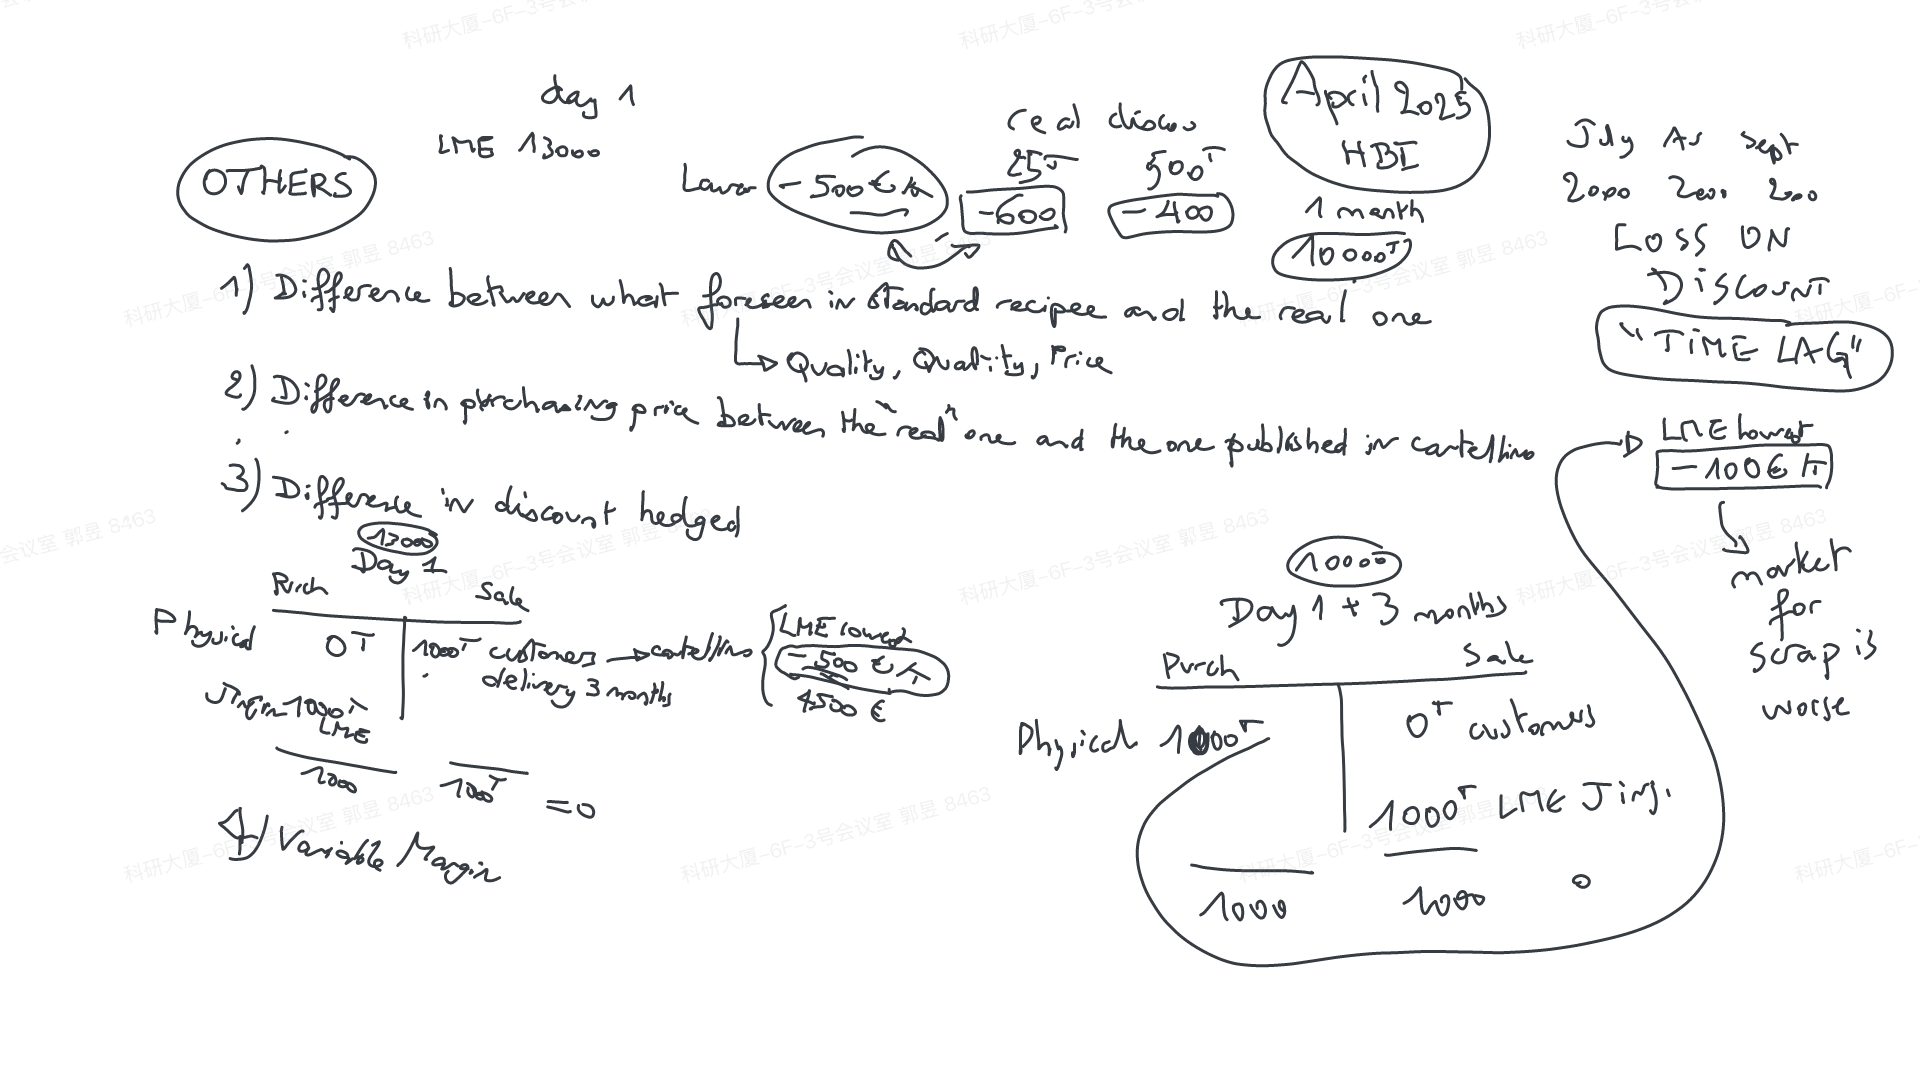 OTHERS
day 1
LME 13000
- 500 €
real
25T
500T
-600
-400
April 2025
HBI
1 month
10000T
July As Sept
2000 2000 2000
LOSS ON
DISCOUNT
"TIME LAG"
1) Difference between what foreseen in standard recipee and the real one
Quality, Quality, Price
2) Difference in purchasing price between the "real" one and the one published in cartellino
3) Difference in discount hedged
13000
Day 1
Purch
Sale
Physical
0T
1000T customers
cartellino
delivery 3 months
LME lowest
- 500 €/T
4,500 €
1000T
LME
1000
1000T
=0
4) Variable Margin
10000
Day 1 + 3 months
Purch
Sale
Physical 1000T
0T customers
1000T LME Jinj.
1000
1000
0
LME lowest
-100 € /T
market
for
scrap is
worse
科研大厦-6F-3号会议室 郭昱 8463